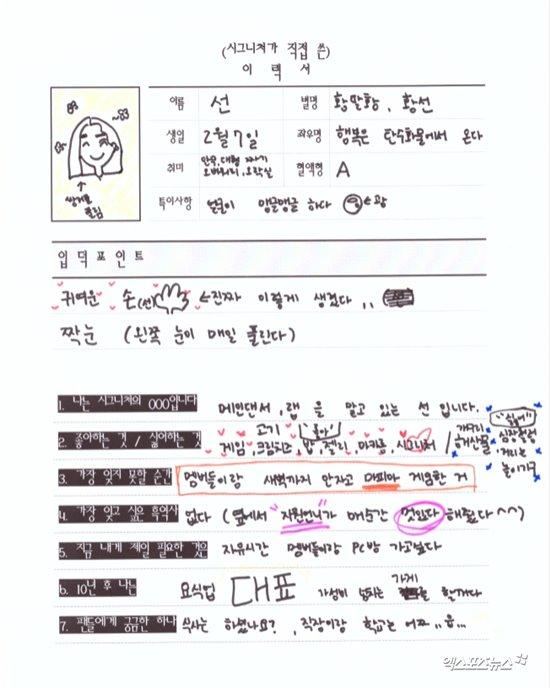 (시그니처가 직접 쓴)
이 력 서
이름 선 별명 황말황, 황선
생일 2월 7일 좌우명 행복은 탄수화물에서 온다
취미 안무, 대형 짜기 오버워치, 오락실 혈액형 A
특이사항 얼굴이 맹글맹글 하다 ←광
쌍커풀
풀림
입덕포인트
귀여운 손(선) ←진짜 이렇게 생겼다..
짝눈 (왼쪽 눈이 매일 풀린다)
1. 나는 시그니처의 OOO입니다 메인댄서, 랩을 맡고 있는 선 입니다.
2. 좋아하는 것 / 싫어하는 것 게임, 고기, 크림치즈, 밥, 젤리, 마카롱, 시그니처 / 개구리 해산물 "싫어" 심장철렁 거리는 놀이기구
"좋아"
3. 가장 잊지 못할 순간 멤버들이랑 새벽까지 안자고 마피아 게임한 거
4. 가장 잊고 싶은 흑역사 없다 (옆에서 "지원언니가 매순간 멋있다" 해줬다^^)
5. 지금 내게 제일 필요한 것은 자유시간 멤버들이랑 PC방 가고싶다
6. 10년 후 나는 요식업 대표 가성비 넘치는 가게를 할꺼다
7. 팬들에게 궁금한 하나 식사는 하셨나요?, 직장이랑 학교는 어찌..음...
엑스포츠뉴스